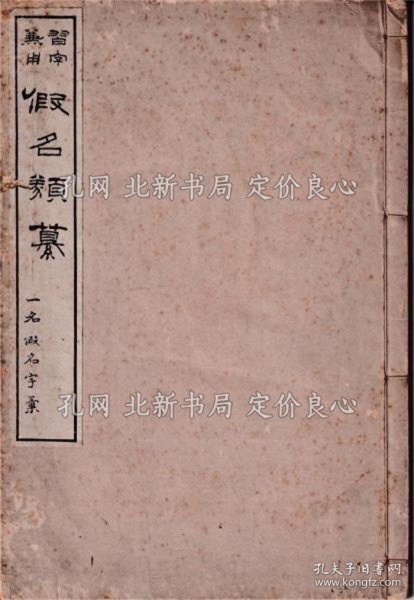 習字兼用
假名類纂
一名假名字彙
孔网 北新书局 定价良心
孔网 北新书局 定价良心
孔夫子旧书网